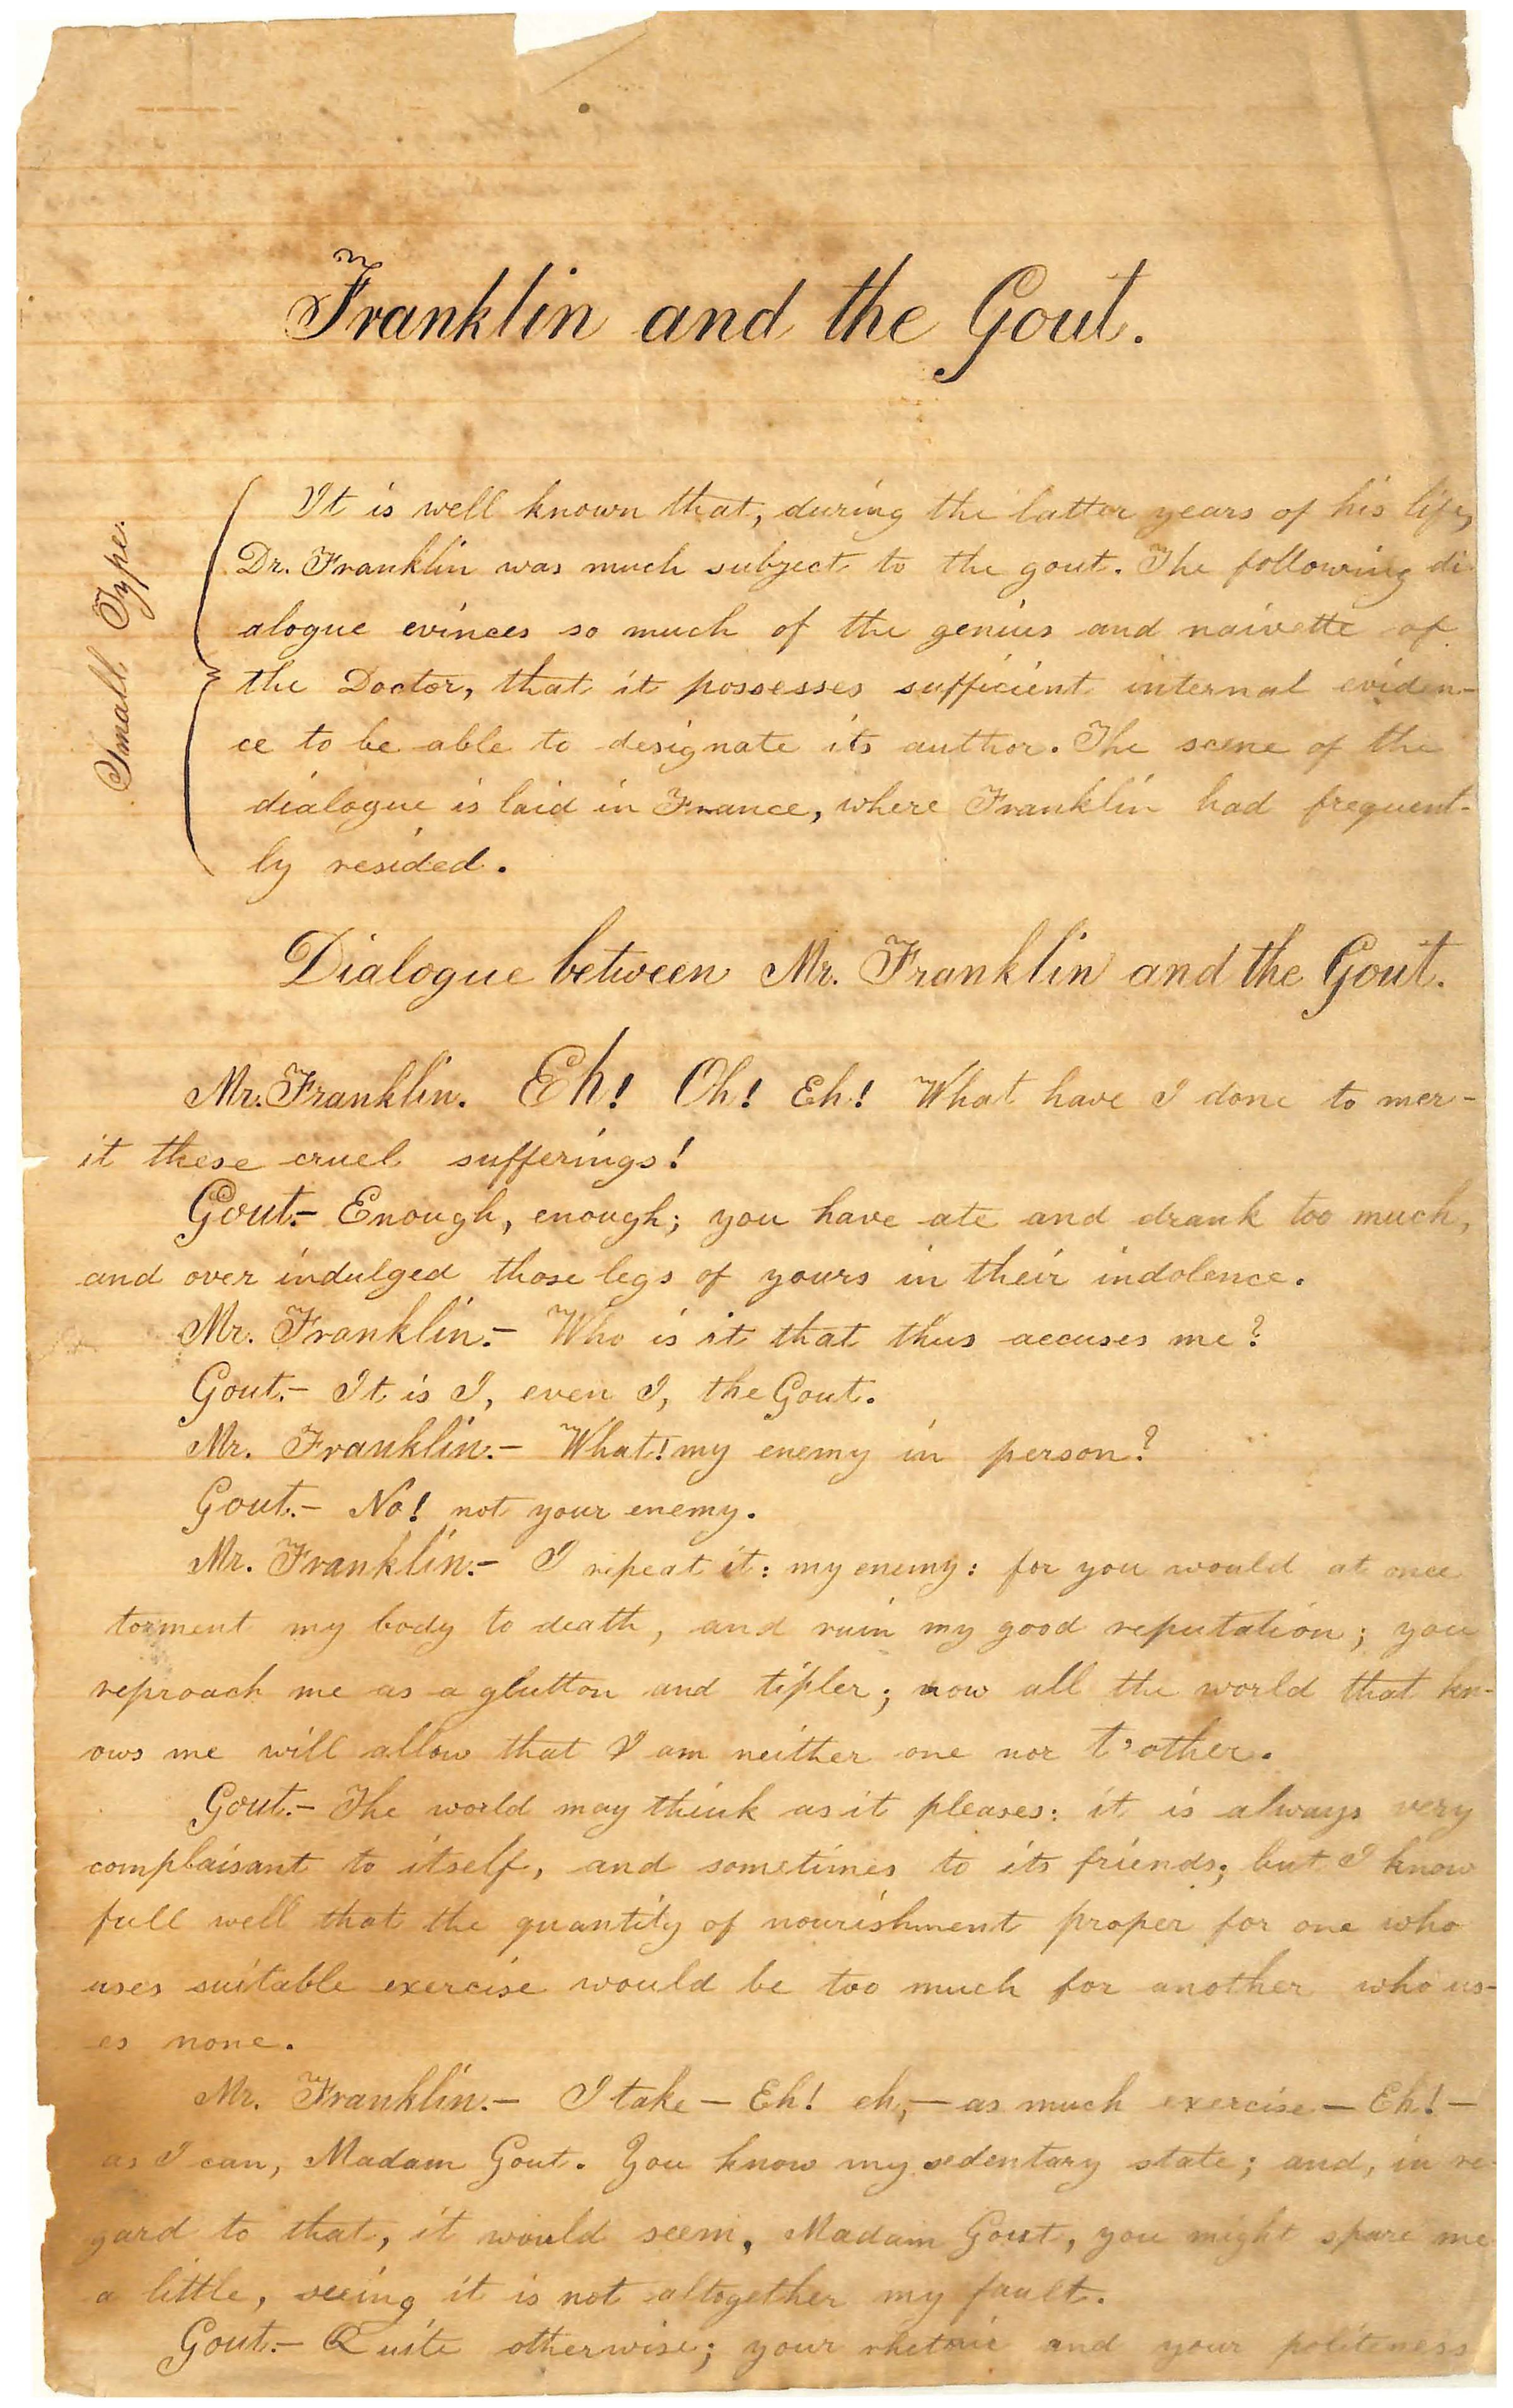 Franklin and the Gout.
Small Type.
It is well known that, during the latter years of his life,
Dr. Franklin was much subject to the gout. The following di-
alogue evinces so much of the genius and naivette of
the Doctor, that it possesses sufficient internal eviden-
ce to be able to designate its author. The scene of the
dialogue is laid in France, where Franklin had frequent-
ly resided.
Dialogue between Mr. Franklin and the Gout.
Mr. Franklin. Eh! Oh! Eh! What have I done to mer-
it these cruel sufferings!
Gout.- Enough, enough; you have ate and drank too much,
and over indulged those legs of yours in their indolence.
Mr. Franklin.- Who is it that thus accuses me?
Gout.- It is I, even I, the Gout.
Mr. Franklin.- What! my enemy in person?
Gout.- No! not your enemy.
Mr. Franklin.- I repeat it: my enemy: for you would at once
torment my body to death, and ruin my good reputation; you
reproach me as a glutton and tipler; now all the world that kn-
ows me will allow that I am neither one nor t'other.
Gout.- The world may think as it pleases: it is always very
complaisant to itself, and sometimes to its friends; but I know
full well that the quantity of nourishment proper for one who
uses suitable exercise would be too much for another who us-
es none.
Mr. Franklin.- I take - Eh! eh, - as much exercise - Eh! -
as I can, Madam Gout. You know my sedentary state; and, in re-
gard to that, it would seem, Madam Gout, you might spare me
a little, seeing it is not altogether my fault.
Gout.- Quite otherwise; your rhetoric and your politeness